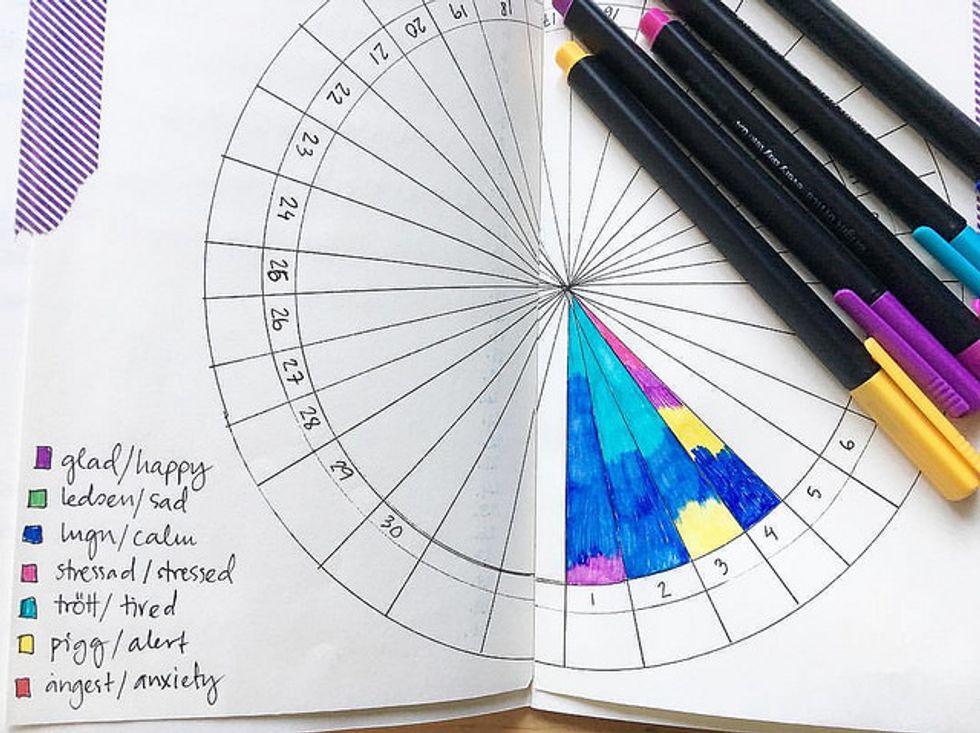 16
17
18
19
20
21
22
23
24
25
26
27
28
29
30
1
2
3
4
5
6
glad/happy
ledsen/sad
lugn/calm
stressad/stressed
trött/tired
pigg/alert
ångest/anxiety